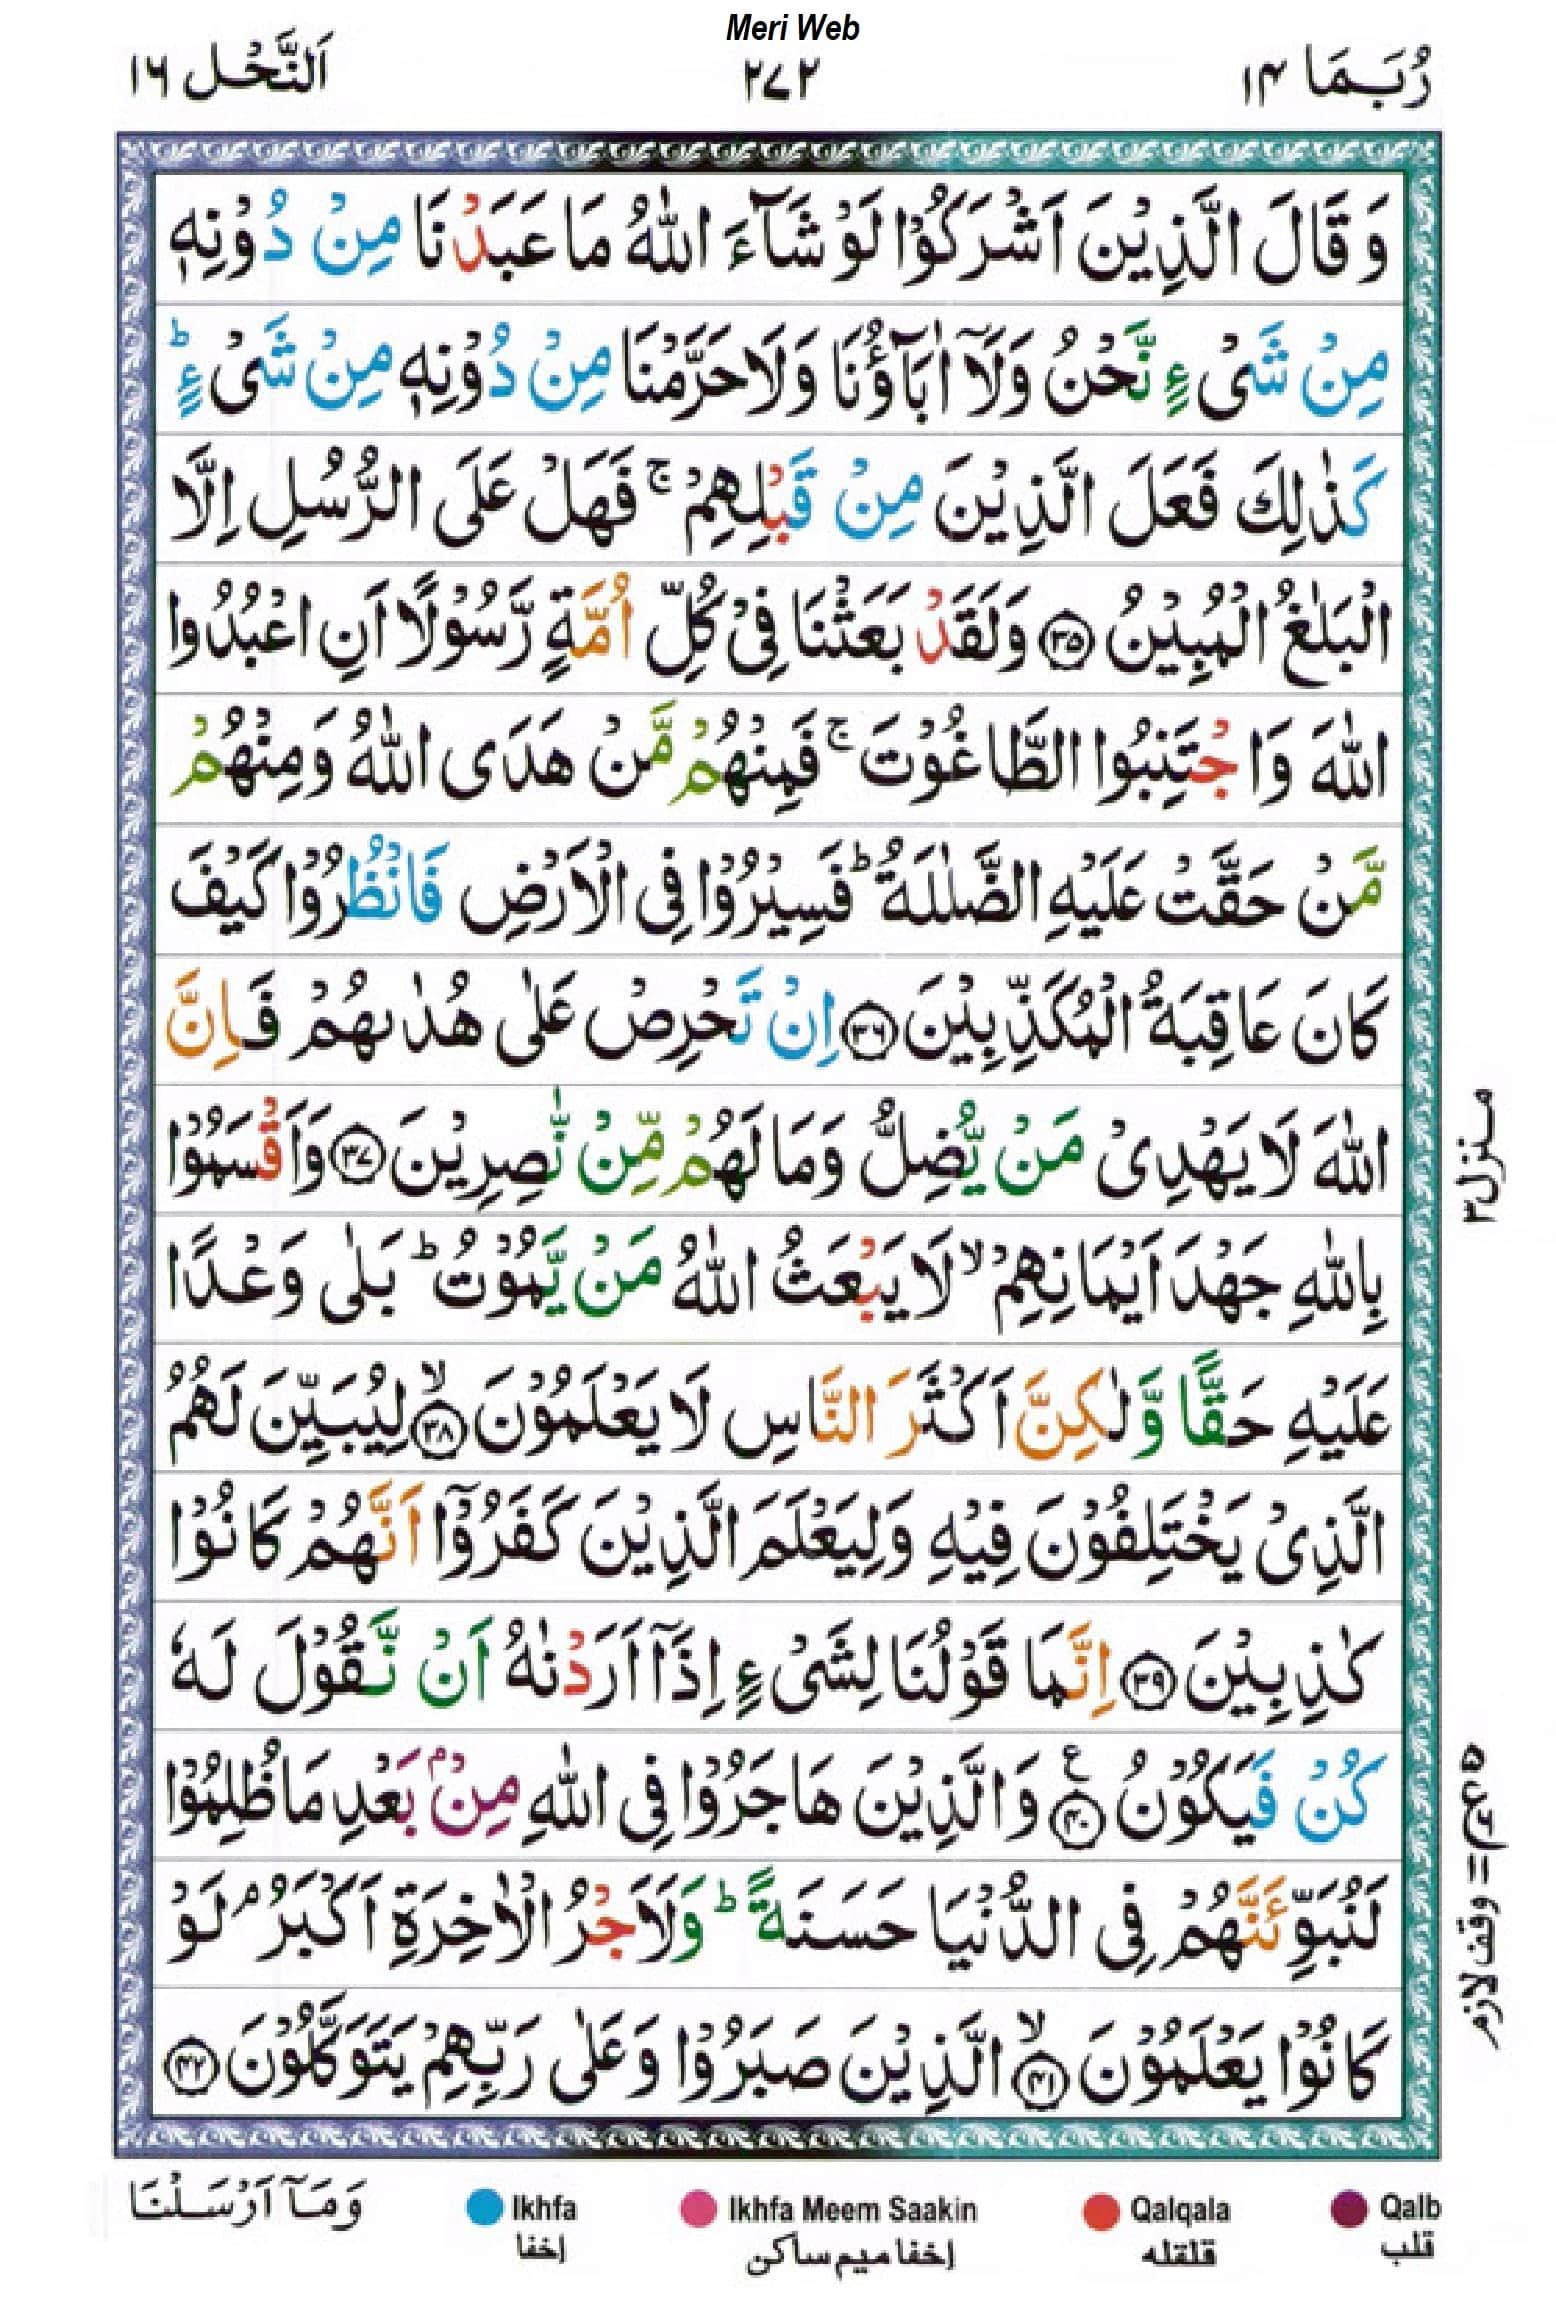 Meri Web
رُبَمَا ۱۴
۲۷۲
اَلنَّحْل ۱۶
وَ قَالَ الَّذِيْنَ اَشْرَكُوْا لَوْ شَآءَ اللّٰهُ مَا عَبَدْنَا مِنْ دُوْنِهٖ
مِنْ شَیْءٍ نَّحْنُ وَلَاۤ اٰبَآؤُنَا وَلَا حَرَّمْنَا مِنْ دُوْنِهٖ مِنْ شَیْءٍ ؕ
كَذٰلِكَ فَعَلَ الَّذِيْنَ مِنْ قَبْلِهِمْ ۚ فَهَلْ عَلَى الرُّسُلِ اِلَّا
الْبَلٰغُ الْمُبِيْنُ ۝۳۵ وَلَقَدْ بَعَثْنَا فِیْ كُلِّ اُمَّةٍ رَّسُوْلًا اَنِ اعْبُدُوا
اللّٰهَ وَاجْتَنِبُوا الطَّاغُوْتَ ۚ فَمِنْهُمْ مَّنْ هَدَى اللّٰهُ وَمِنْهُمْ
مَّنْ حَقَّتْ عَلَيْهِ الضَّلٰلَةُ ؕ فَسِيْرُوْا فِی الْاَرْضِ فَانْظُرُوْا كَيْفَ
كَانَ عَاقِبَةُ الْمُكَذِّبِيْنَ ۝۳۶ اِنْ تَحْرِصْ عَلٰى هُدٰىهُمْ فَاِنَّ
اللّٰهَ لَا يَهْدِیْ مَنْ يُّضِلُّ وَمَا لَهُمْ مِّنْ نّٰصِرِيْنَ ۝۳۷ وَاَقْسَمُوْا
بِاللّٰهِ جَهْدَ اَيْمَانِهِمْ ۙ لَا يَبْعَثُ اللّٰهُ مَنْ يَّمُوْتُ ؕ بَلٰى وَعْدًا
عَلَيْهِ حَقًّا وَّلٰكِنَّ اَكْثَرَ النَّاسِ لَا يَعْلَمُوْنَ ۙ۝۳۸ لِيُبَيِّنَ لَهُمُ
الَّذِیْ يَخْتَلِفُوْنَ فِيْهِ وَلِيَعْلَمَ الَّذِيْنَ كَفَرُوْۤا اَنَّهُمْ كَانُوْا
كٰذِبِيْنَ ۝۳۹ اِنَّمَا قَوْلُنَا لِشَیْءٍ اِذَاۤ اَرَدْنٰهُ اَنْ نَّقُوْلَ لَهٗ
كُنْ فَيَكُوْنُ ۝۴۰ ع وَالَّذِيْنَ هَاجَرُوْا فِی اللّٰهِ مِنْۢ بَعْدِ مَا ظُلِمُوْا
لَنُبَوِّئَنَّهُمْ فِی الدُّنْيَا حَسَنَةً ؕ وَلَاَجْرُ الْاٰخِرَةِ اَكْبَرُ ۘ لَوْ
كَانُوْا يَعْلَمُوْنَ ۙ۝۴۱ الَّذِيْنَ صَبَرُوْا وَعَلٰى رَبِّهِمْ يَتَوَكَّلُوْنَ ۝۴۲
منزل۳
وقف لازم
وَمَاۤ اَرْسَلْنَا
Ikhfa
Ikhfa Meem Saakin
Qalqala
Qalb
إخفا
إخفا ميم ساكن
قلقله
قلب